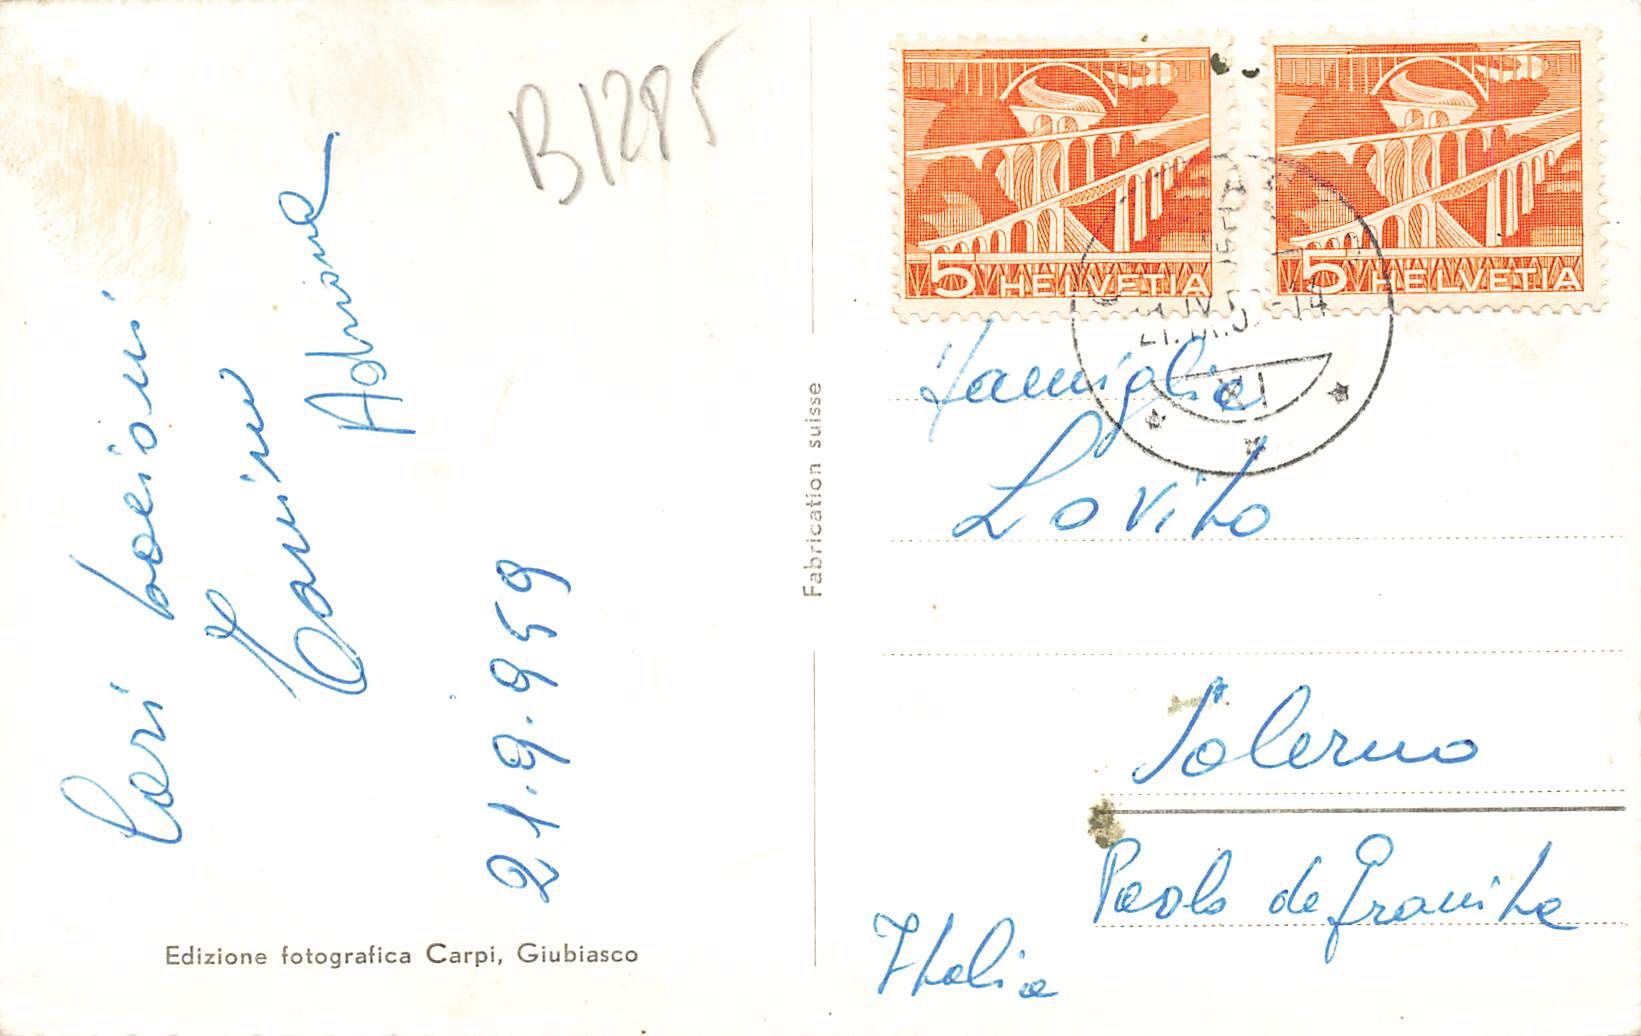 B1285
Cari bacioni
Adriana
21.9.959
Edizione fotografica Carpi, Giubiasco
Fabrication suisse
5 HELVETIA
5 HELVETIA
21.IX.5 -14
XI
Famiglia
Lovito
Salerno
Paolo de Granita
Italia